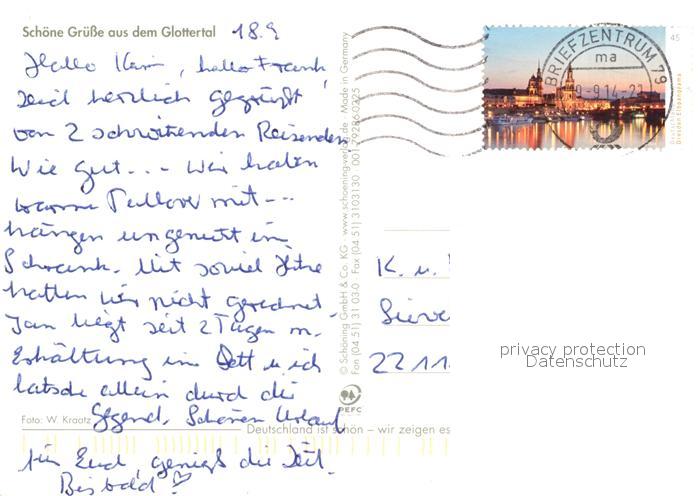 Schöne Grüße aus dem Glottertal 18.9
Hallo Karin, hallo Frank,
seid herzlich gegrüßt
von 2 schwitzenden Reisenden
Wie gut... wir haben
warme Pullover mit --
hängen ungenutzt im
Schrank. Mit soviel Hitze
hatten wir nicht gerechnet.
Jan liegt seit 2 Tagen m.
Erkältung im Bett u. ich
latsche allein durch die
Gegend. Schönen Urlaub
für Euch, genießt die Zeit.
Bis bald
Foto: W. Kraatz
Deutschland ist schön – wir zeigen es
© Schöning GmbH & Co. KG · www.schoening-verlag.de · Made in Germany
Fon (04 51) 31 03-0 · Fax (04 51) 3103130 · 001 79286 0225
PEFC
45
Dresden Elbpanorama
BRIEFZENTRUM 79
ma
9.14-21
K. u.
Sierc
22 11
privacy protection
Datenschutz